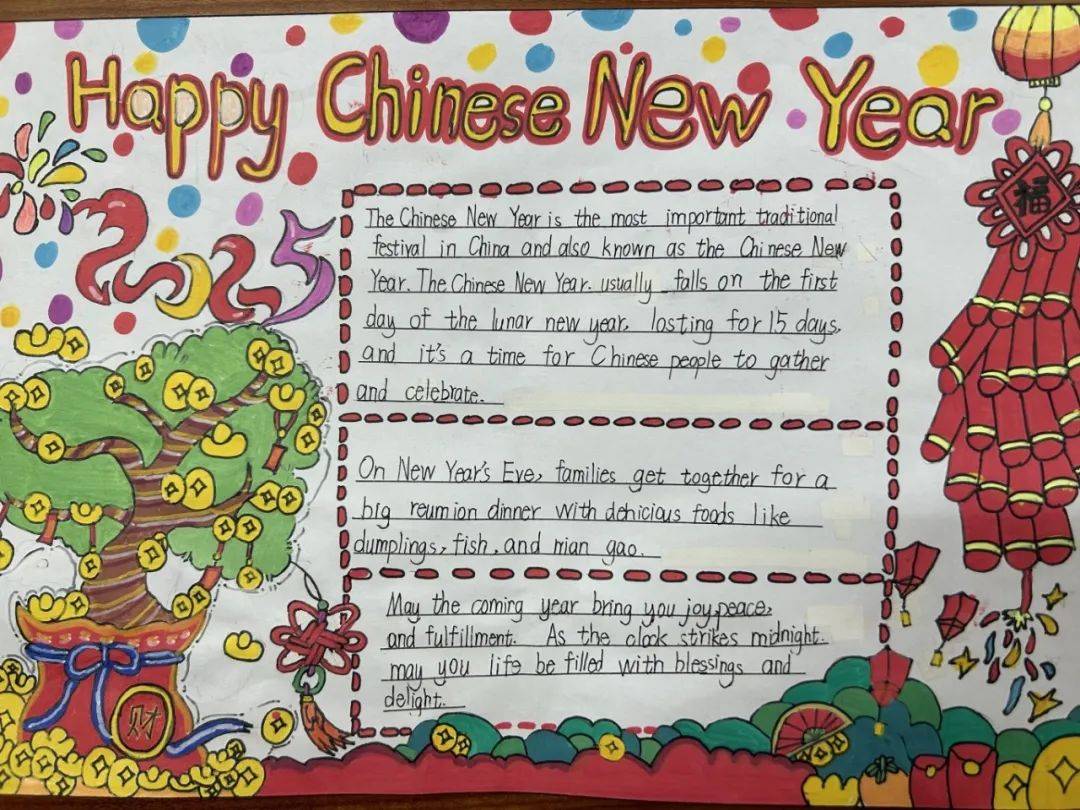 Happy Chinese New Year
2025
福
The Chinese New Year is the most important traditional
festival in China and also known as the Chinese New
Year. The Chinese New Year. usually falls on the first
day of the lunar new year, lasting for 15 days.
and it's a time for Chinese people to gather
and celebrate.
On New Year's Eve, families get together for a
big reumion dinner with dehicious foods like
dumplings, fish, and nian gao.
May the coming year bring you joy,peace,
and fulfillment. As the clock strikes midnight.
may you life be filled with blessings and
delight.
财